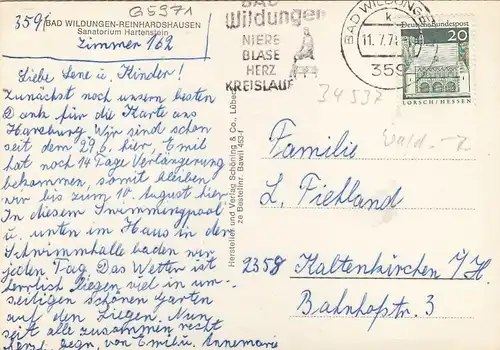 G5971
3591 BAD WILDUNGEN-REINHARDSHAUSEN
Sanatorium Hartenstein
Zimmer 162
Liebe Lene u. Kinder!
Zunächst noch unsern besten
Dank für die Karte aus
Harzburg Wir sind schon
seit dem 29.6. hier, Emil
hat noch 14 Tage Verlängerung
bekommen, somit bleiben
wir bis zum 10. August hier
In diesem Swimmingpool
u. unten im Haus in der
Schwimmhalle baden wir
jeden Tag. Das Wetter ist
herrlich liegen viel in um-
seitigen schönen Garten
auf den Liegen. Nun
seit alle zusammen recht
herz. gegr. von Emil u. Annemarie
Hersteller und Verlag Schöning & Co., Lübeck
ze Bestellnr. Bawil 453-f
BAD
Wildungen
NIERE
BLASE
HERZ
KREISLAUF
BAD WILDUNGEN
11.7.7
359
Deutsche Bundespost
20
LORSCH/HESSEN
34537
Wald-
Familie
L. Fiehland
2358 Kaltenkirchen i/H.
Bahnhofstr. 3